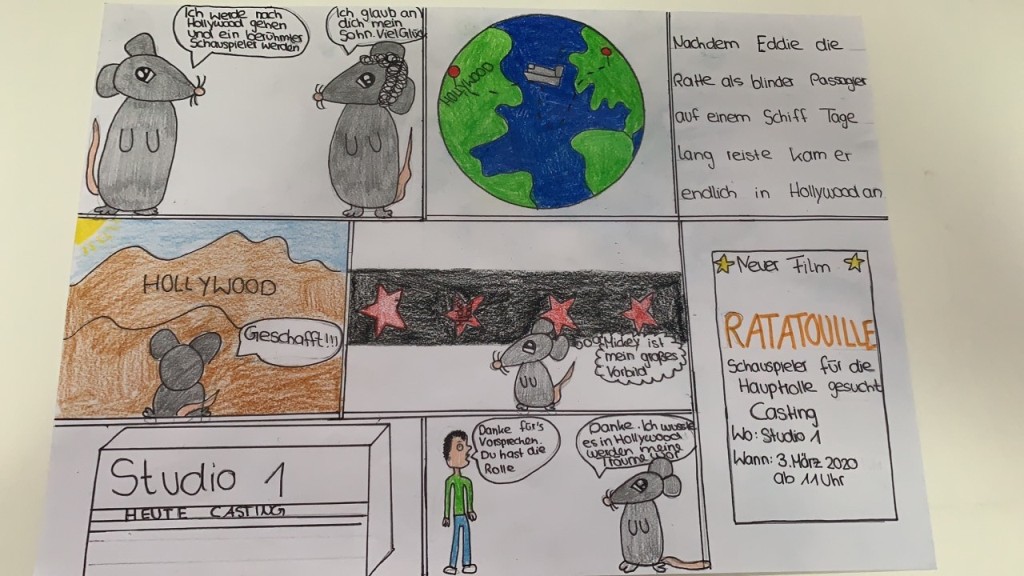 Ich werde nach
Hollywood gehen
und ein berühmter
Schauspieler werden
Ich glaub an
dich mein
Sohn. Viel Glück
HOLLYWOOD
Nachdem Eddie die
Ratte als blinder Passagier
auf einem Schiff Tage
lang reiste kam er
endlich in Hollywood an.
HOLLYWOOD
Geschafft!!!
Mickey ist
mein großes
Vorbild
Neuer Film
RATATOUILLE
Schauspieler für die
Hauptrolle gesucht
Casting
Wo: Studio 1
Wann: 3. März 2020
ab 11 Uhr
Studio 1
HEUTE CASTING
Danke für's
Vorsprechen.
Du hast die
Rolle
Danke. Ich wusste
es in Hollywood
werden meine
Träume